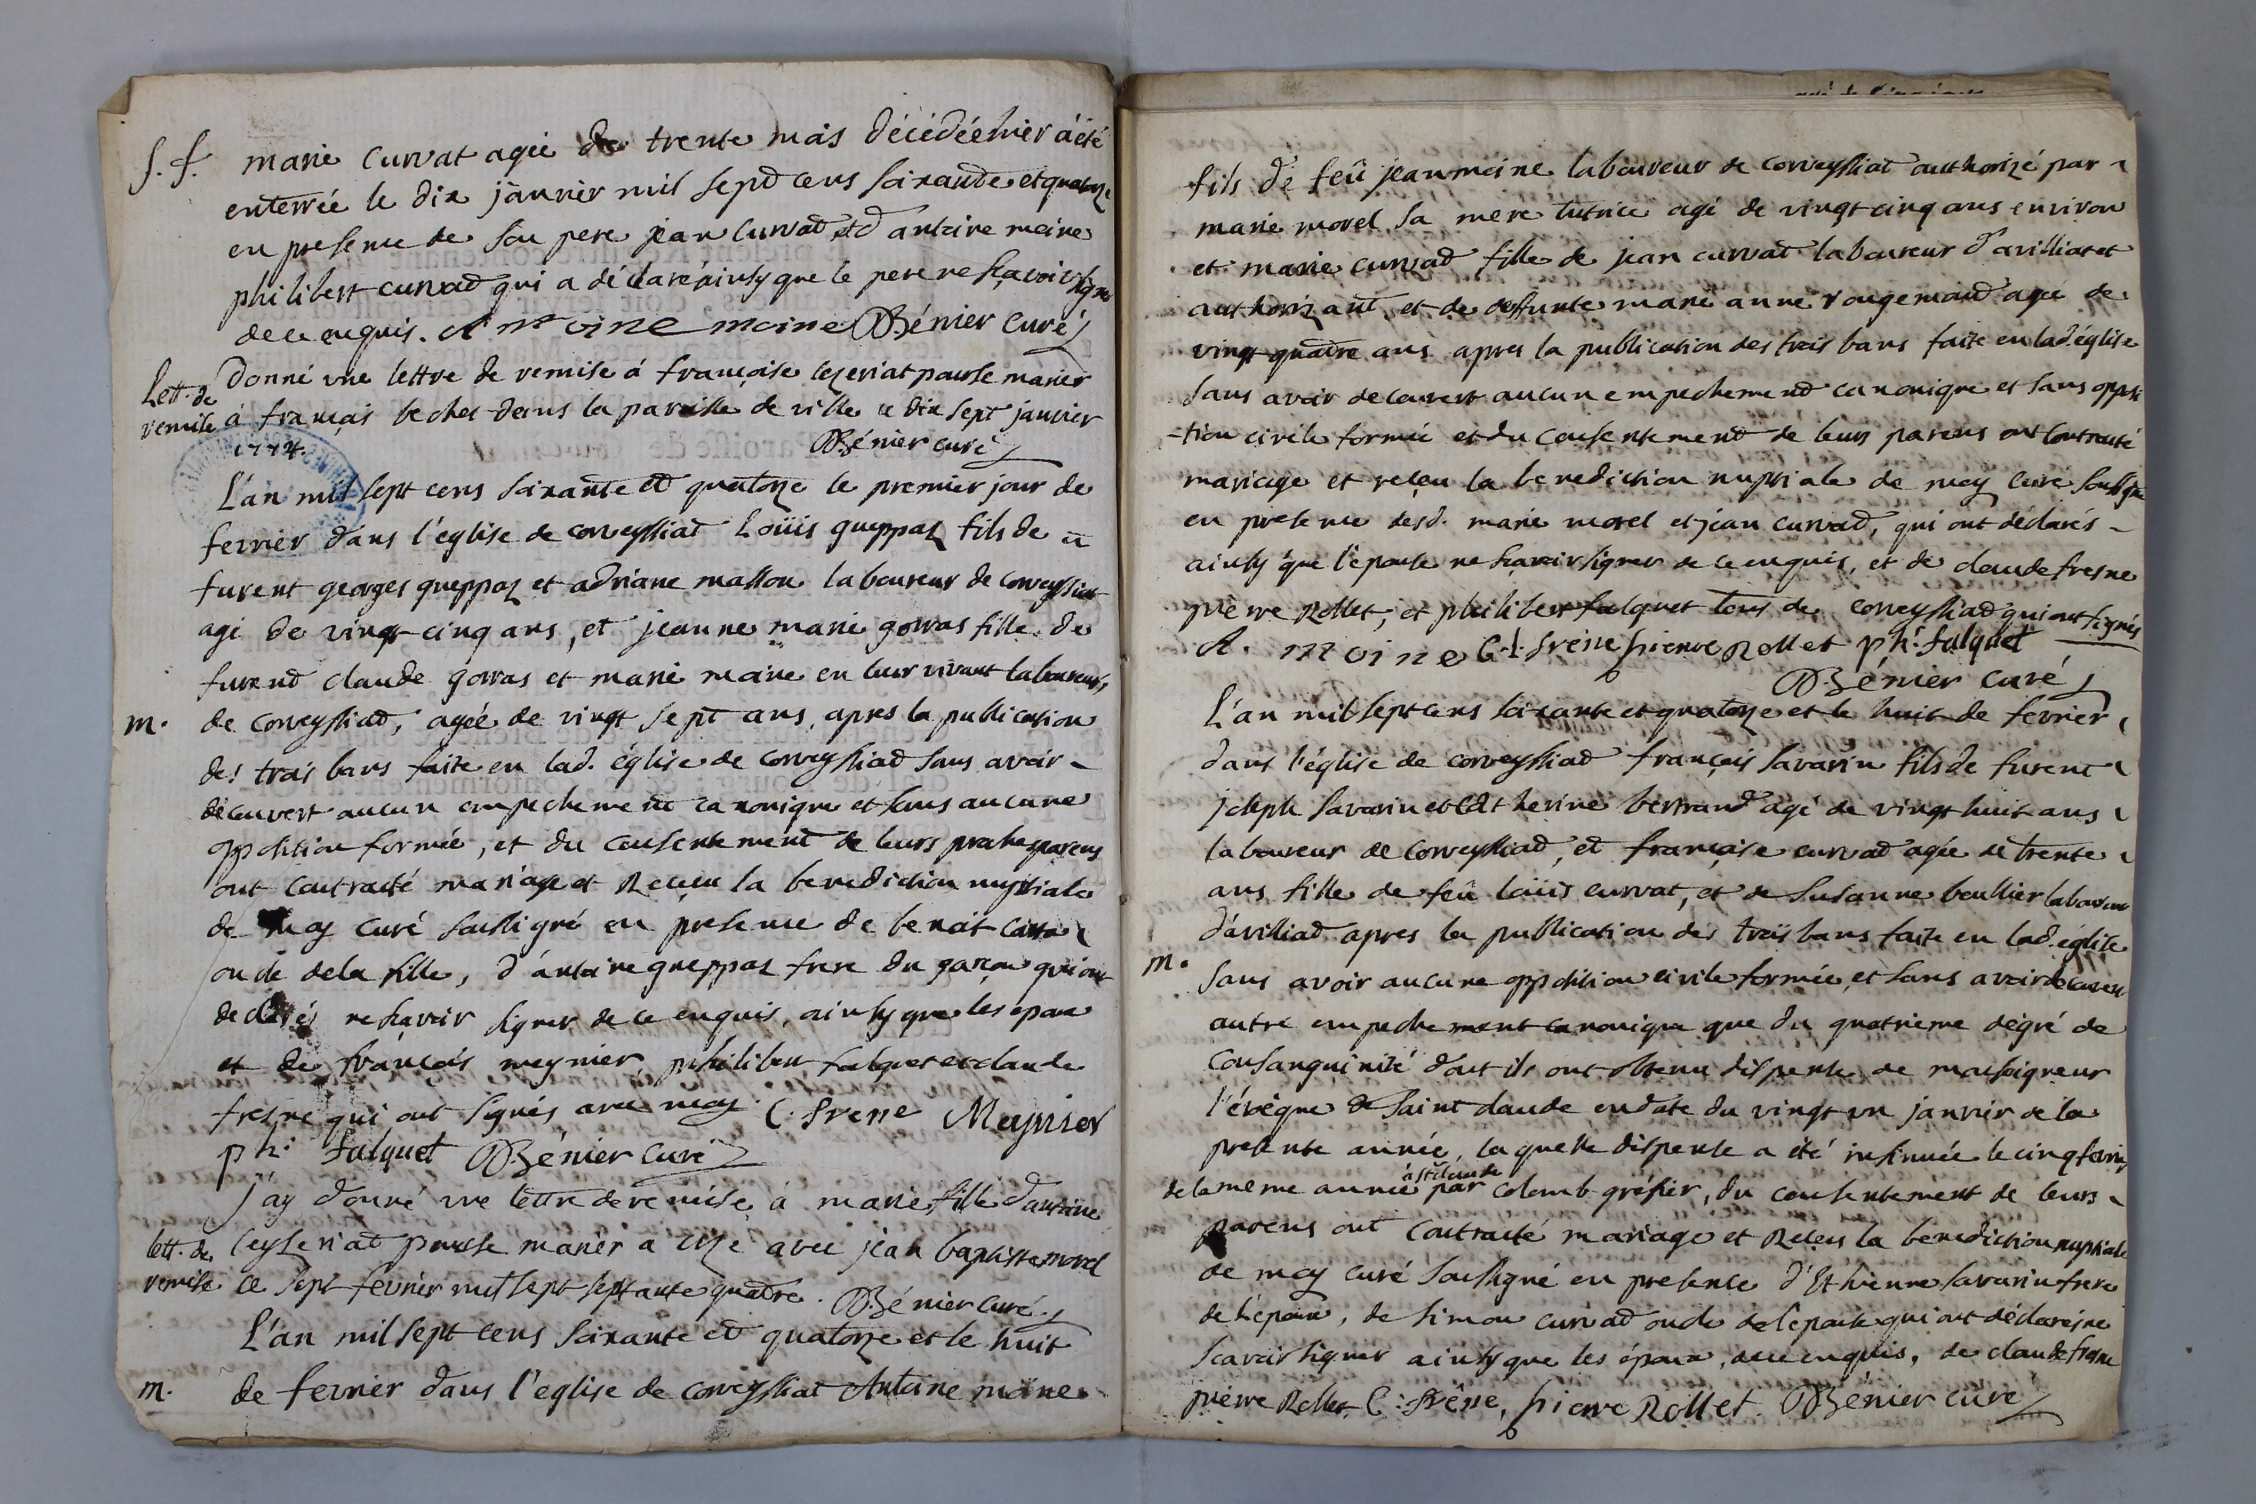 s. f. marie curvat agée de trente mois décédée hier a été
enterrée le dix janvier mil sept cens soixante et quatorze
en presence de son pere jean curvat et d'antoine moine
philibert curvat qui a déclaré ainsy que le pere ne sçavoir signer
de ce enquis. Antoine moine DBénier curé
Lett. de remise
donné une lettre de remise á françoise lezeriat pour se marier
á françois bechet dans la paroisse de ville ce dix sept janvier
1774. DBénier curé
L'an mil sept cens soixante et quatorze le premier jour de
fevrier dans l'église de corveyssiat Loüis gueppaz fils de
furent georges gueppaz et adriane masson laboureur de corveyssiat
agé de vingt-cinq ans, et jeanne marie gorras fille de
furend claude gorras et marie moine en leur vivant laboureurs
m. de corveyssiad, agée de vingt sept ans, apres la publication
des trois bans faite en lad. église de corveyssiad sans avoir
découvert aucun empechement canonique et sans aucune
opposition formée, et du consentement de leurs proches parens
ont contracté mariage et Receu la benediction nuptiale
de moy curé soussigné en presence de benoit
oncle de la fille, d'antoine gueppaz frere du garçon qui ont
declarés ne sçavoir signer de ce enquis, ainsy que les epoux
et de françois meynier, philibert falquet et claude
fresne qui ont signés avec moy. C. frene Meynier
ph: falquet DBénier curé
J'ay donné une lettre de remise á marie fille d'antoine
lett. de remise
leyzeriat pour se marier a cize avec jean baptiste morel
ce sept fevrier mil sept septante quatre. DBénier curé
L'an mil sept cens soixante et quatorze et le huit
m. de fevrier dans l'eglise de corveyssiat Antoine moine
fils de feû jean moine laboureur de corveyssiat authorizé par
marie morel sa mere tutrice agé de vingt cinq ans environ
et marie curvad fille de jean curvat laboureur d'avilliat et
authorizant, et de deffunte marie anne rougemond agée de
vingt quatre ans apres la publication des trois bans faite en lad église
sans avoir decouvert aucun empechement canonique et sans opposi
-tion civile formée et du consentement de leurs parens ont contracté
mariage et receu la benediction nuptiale de moy curé soussigné
en presence desd. marie morel et jean curvad, qui ont déclarés
ainsy que l'épouse ne sçavoir signer de ce enquis, et de claude fresne
pierre Rollet, et philibert falquet tous de corveyssiad qui ont signés
A. moine C.l. frene pierre Rollet ph: falquet
DBénier curé
L'an mil sept cens soixante et quatorze et le huit de fevrier
dans l'église de corveyssiad françois savarin fils de furent
joseph savarin et Catherine bertrand agé de vingt huit ans
laboureur de corveyssiad, et françoise curvad agée de trente
ans fille de feû loüis curvat, et de Susanne beullier laboureur
d'avilliad apres la publication des trois bans faite en lad. église
m. sans avoir aucune opposition civile formée, et sans avoir decouvert
autre empechement canonique que du quatrieme degré de
consanguinité dont ils ont obtenu dispense de monseigneur
l'évêque de Saint claude en date du vingt un janvier de la
presente année, laquelle dispense a été insinuée le cinq fevrier
de la meme année á St claude par colomb gréfier, du consentement de leurs
parens ont contracté mariage et Receu la benediction nuptiale
de moy curé soussigné en presence d'Ethienne savarin frere
de l'époux, de simon curvad oncle de l'epouse qui ont déclarés ne
scavoir signer ainsy que les époux, de ce enquis, de claude fresne
pierre Rollet C: frêne, pierre Rollet. DBénier curé